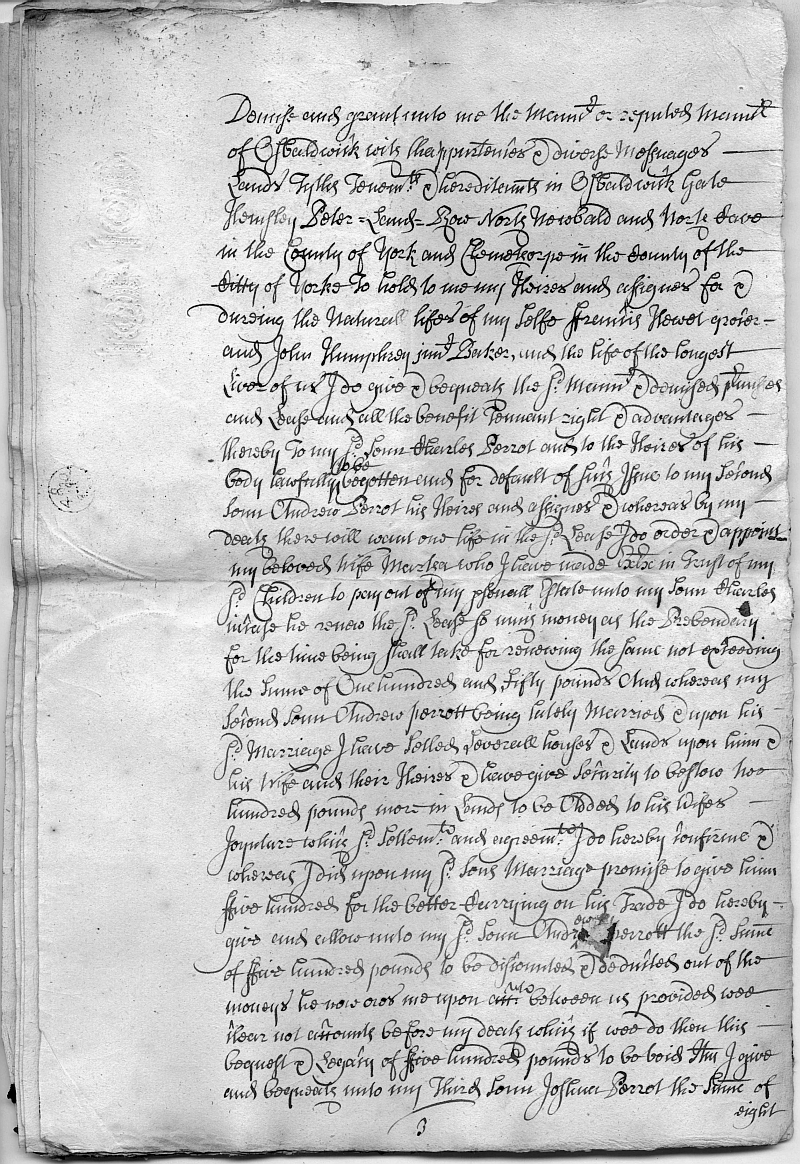 Demise and grant unto me the Mannr or reputed Mannr
of Osbaldwick with thappurtences & diverse Messuages
Lands Tyths Tenemts & hereditamts in Osbaldwick Gate
Hemsley Peter-Land-Row North Newbald and North Cave
in the County of York and Clemethorpe in the County of the
Citty of Yorke To hold to me my Heires and assignes for &
dureing the Naturall lifes of my selfe Francis Hewet grocer
and John Humphrey junr Baker, and the life of the longest
Liver of us I do give & bequeath the sd Mannr & demised prmisses
and Lease and all the benefit Tennant right & advantages
thereby To my sd Sonn Charles Perrot and to the Heires of his
body lawfully to be begotten and for default of such Issue to my second
Sonn Andrew Perrot his Heires and assignes & whereas by my
death there will want one life in the sd Lease I do order & appoint
my beloved wife Martha who I have made Extx in Trust of my
sd Children to pay out of my psonall Estate unto my sonn Charles
incase he renew the sd Lease so much money as the Prebendary
for the time being shall take for renewing the same not exceeding
the Sume of One hundred and fifty pounds And whereas my
second sonn Andrew perrott being lately Married & upon his
sd Marriage I have setled severall houses & Lands upon him &
his wife and their Heires & have give security to bestow two
hundred pounds more in Lands to be Added to his wifes
Joynture which sd settlemts and agreemts I do hereby confirme &
whereas I did upon my sd sons Marriage promise to give him
ffive hundred for the better Carrying on his Trade I do hereby
give and allow unto my sd sonn Andrew perrott the sd sume
of ffive hundred pounds to be discounted & deducted out of the
moneys he now ows me upon acctts between us provided wee
cleare not accounts before my death which if wee do then this
bequest & Legacy of ffive hundred pounds to be void Itm I give
and bequeath unto my Third sonn Joshua Perrot the sume of
eight
3